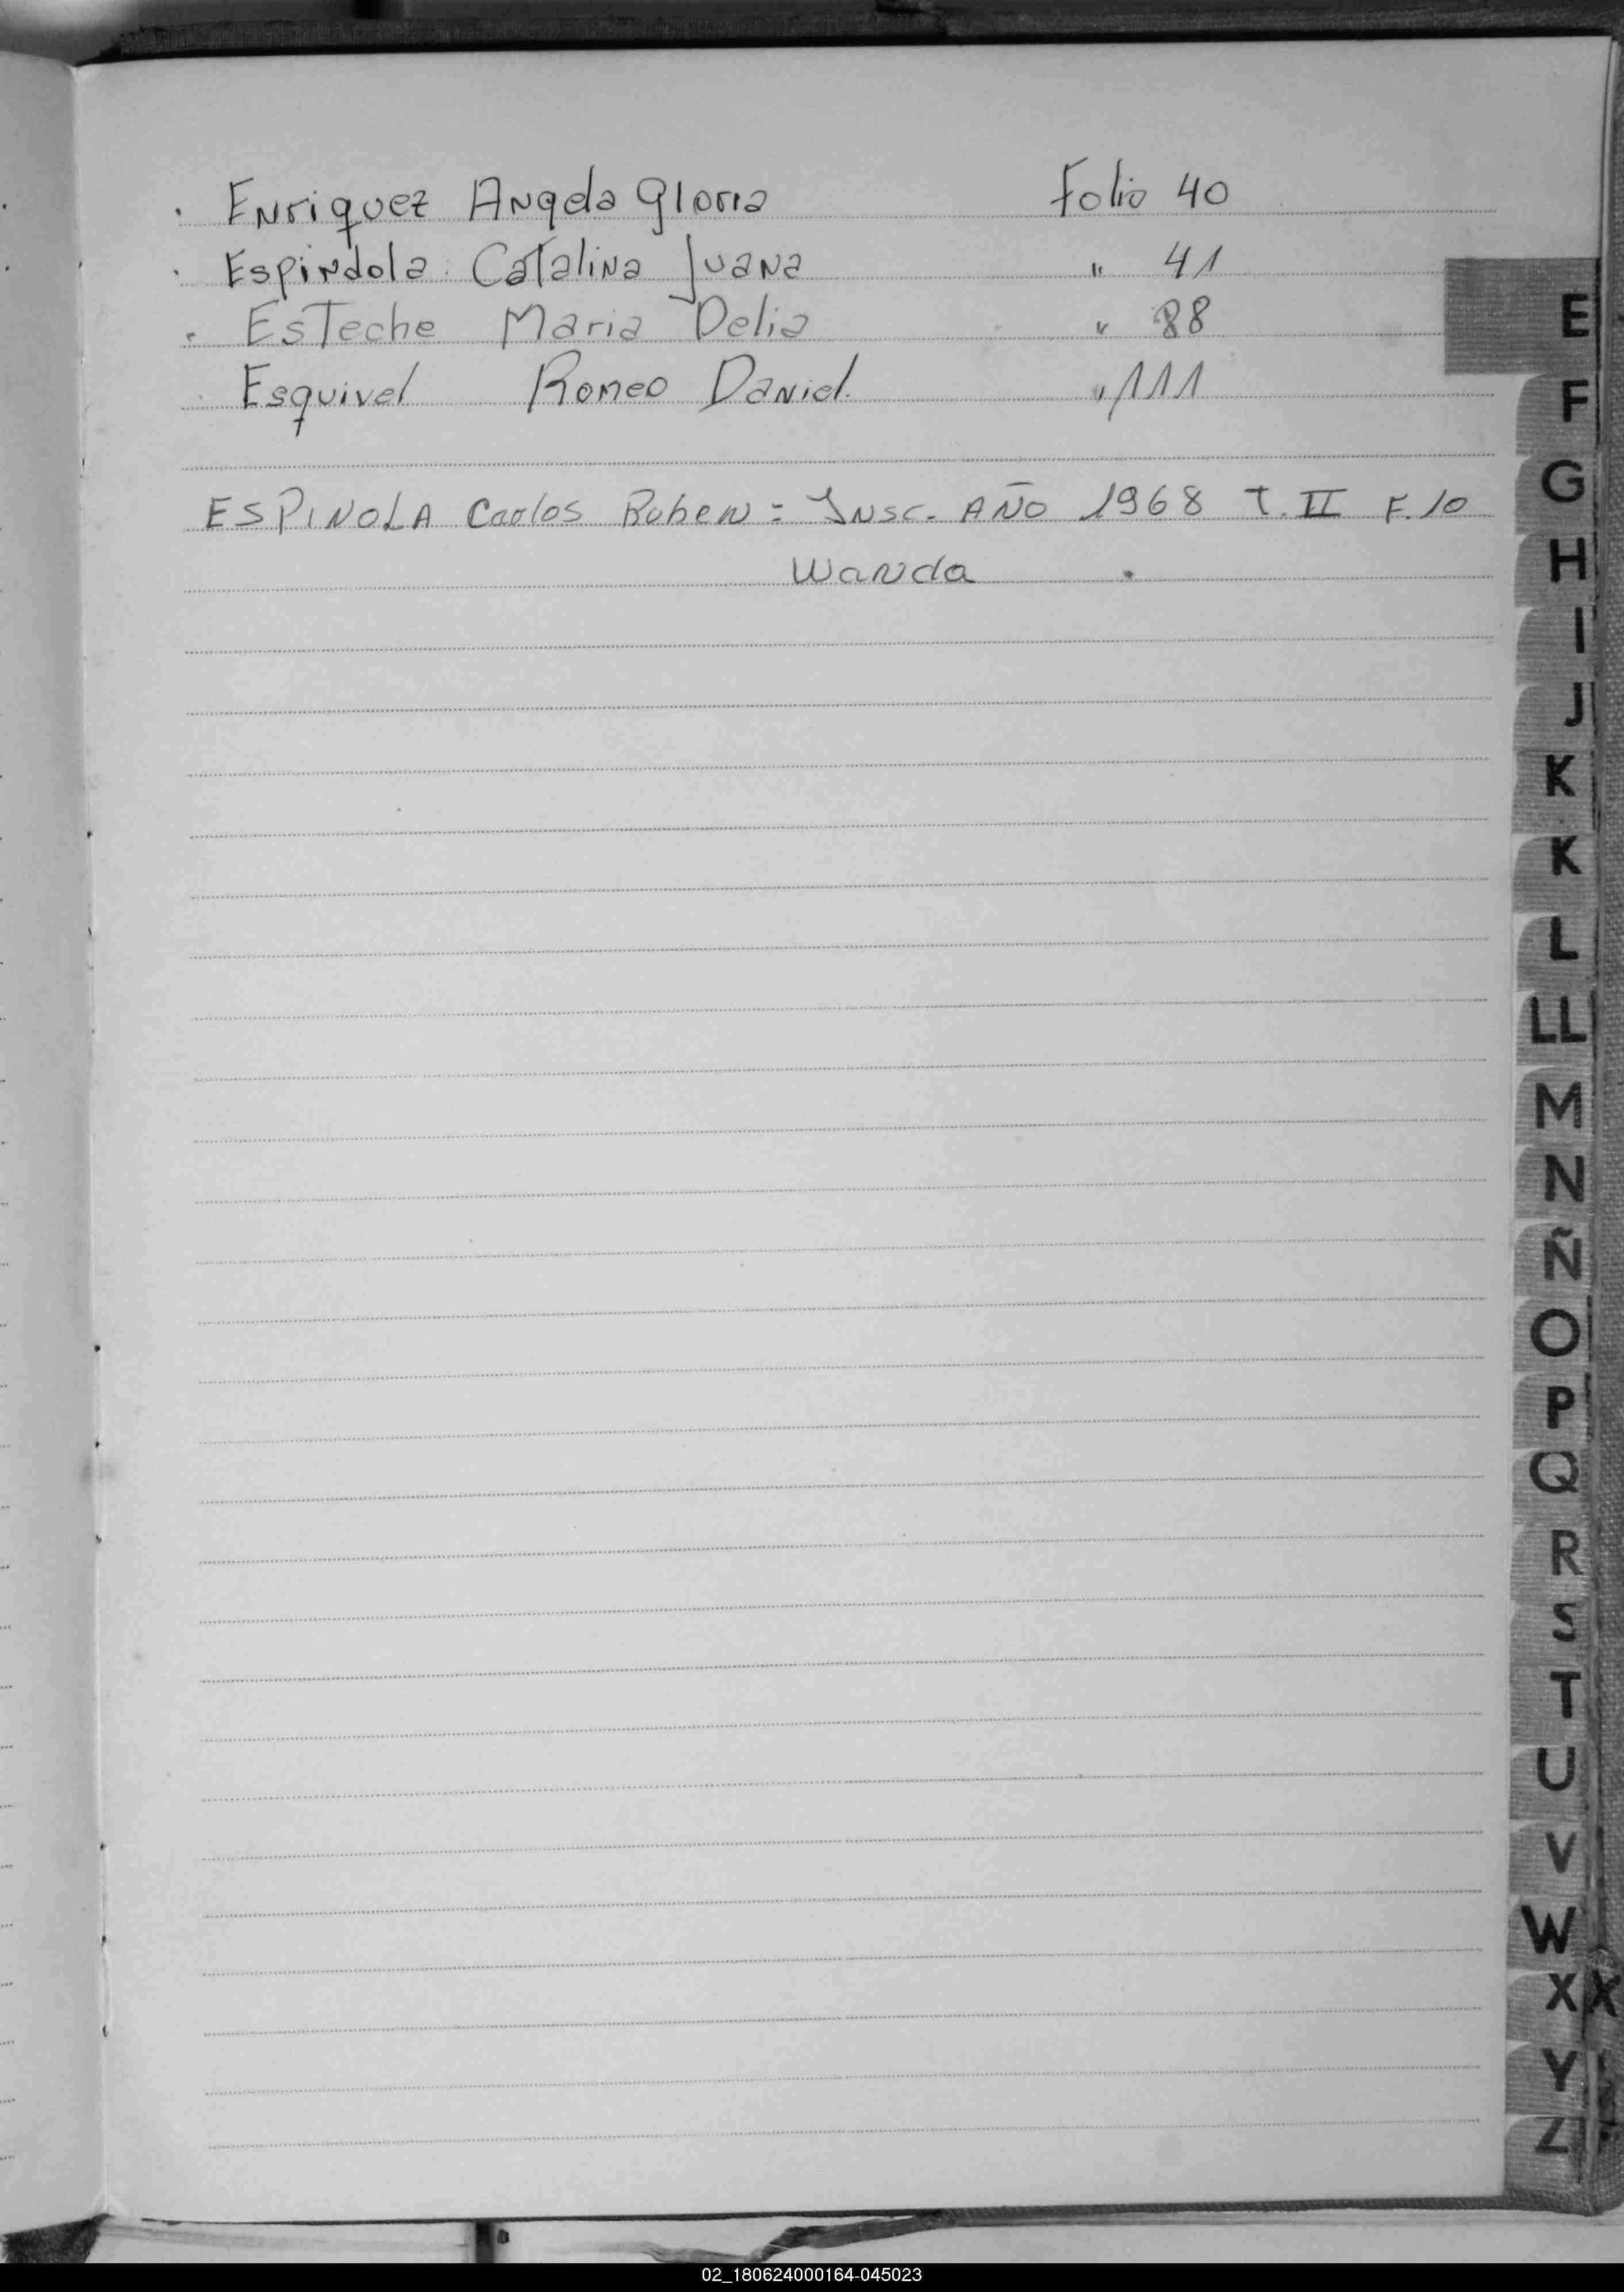 . Enriquez Angela Gloria Folio 40
. Espindola Catalina Juana " 41
. Esteche Maria Delia " 88
. Esquivel Romeo Daniel. " 111
ESPINOLA Carlos Ruben = Insc. AÑO 1968 T. II F. 10
Wanda .
E
F
G
H
I
J
K
K
L
LL
M
N
Ñ
O
P
Q
R
S
T
U
V
W
X X
Y
Z
02_180624000164-045023